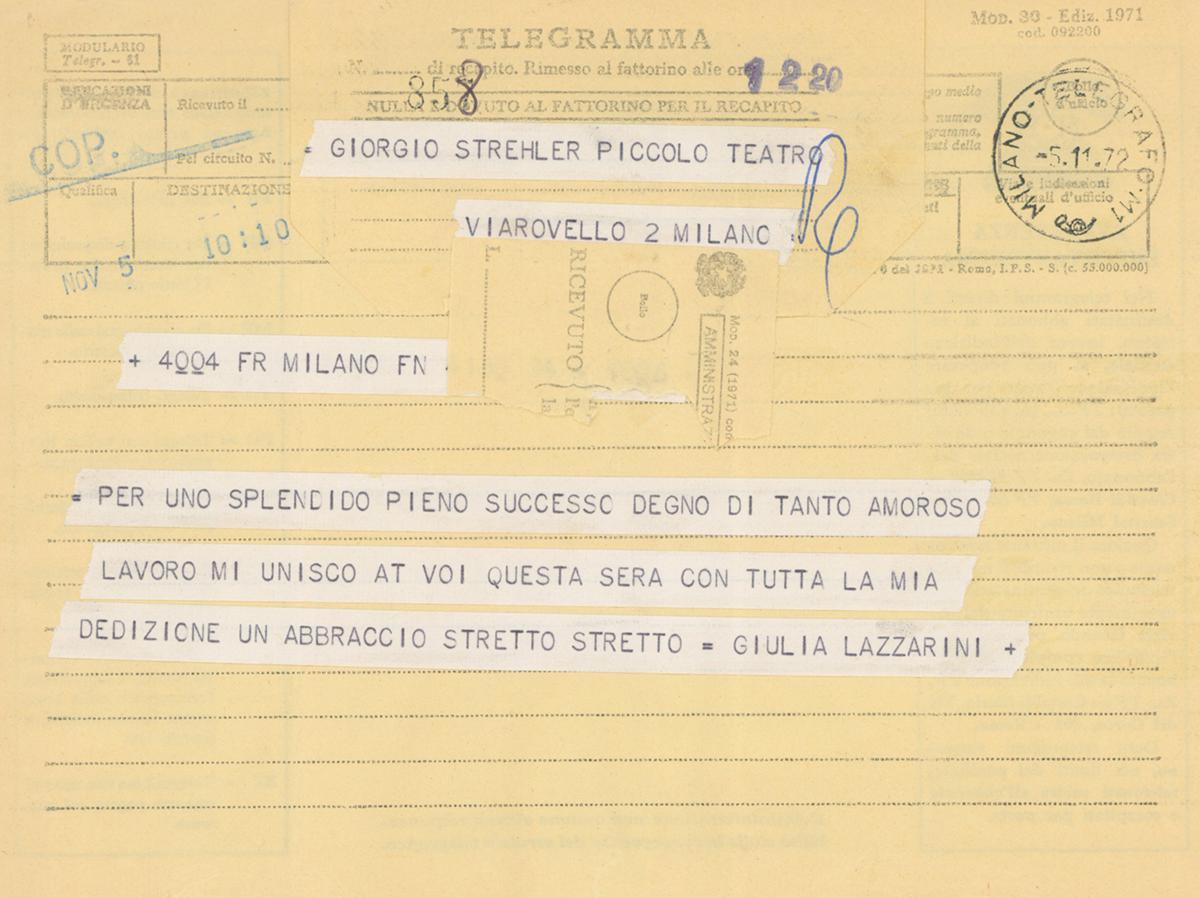 Mod. 30 - Ediz. 1971
cod. 092200
MODULARIO
Telegr. - 61
TELEGRAMMA
N. di recapito. Rimesso al fattorino alle ore 12 20
858
NULLA È DOVUTO AL FATTORINO PER IL RECAPITO
INDICAZIONI
D'URGENZA
Ricevuto il
COP.
Pel circuito N.
Qualifica
DESTINAZIONE
10:10
NOV 5
go media
numero
egramma,
nti della
Bollo
d'ufficio
Vie e indicazioni
eventuali d'ufficio
MILANO-TELEGRAFO-M1
-5.11.72
- Roma, I.P.S. - S. (c. 55.000.000)
= GIORGIO STREHLER PICCOLO TEATRO
VIAROVELLO 2 MILANO =
RICEVUTO
Bollo
Mod. 24 (1971) cod
AMMINISTRAZ
+ 4004 FR MILANO FN
= PER UNO SPLENDIDO PIENO SUCCESSO DEGNO DI TANTO AMOROSO
LAVORO MI UNISCO AT VOI QUESTA SERA CON TUTTA LA MIA
DEDIZIONE UN ABBRACCIO STRETTO STRETTO = GIULIA LAZZARINI +